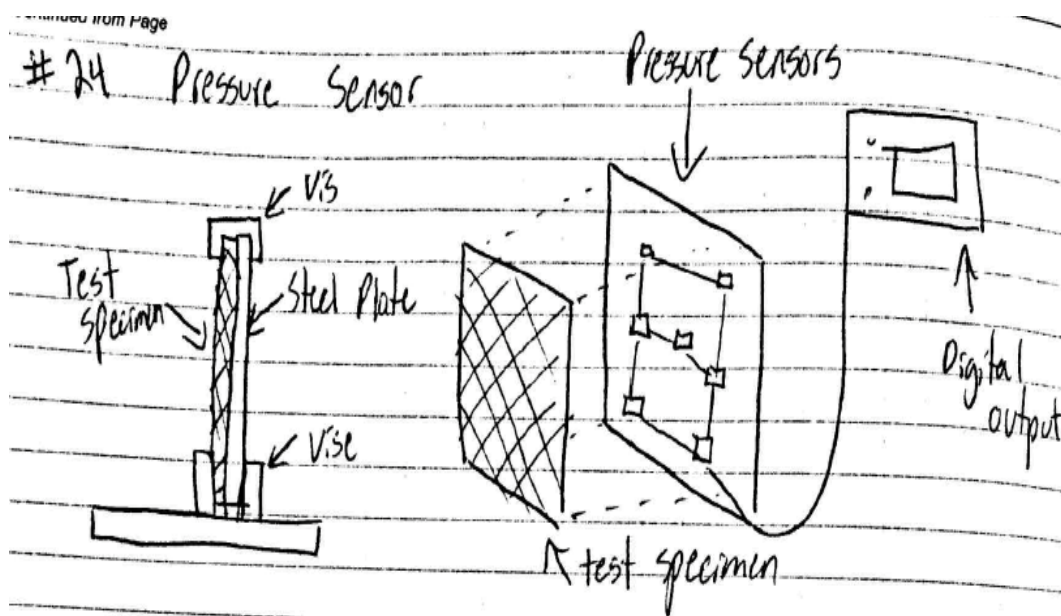 Continued from Page
# 24 Pressure Sensor
Pressure Sensors
Vis
Test
Specimen
Steel Plate
Vise
Digital
output
test specimen